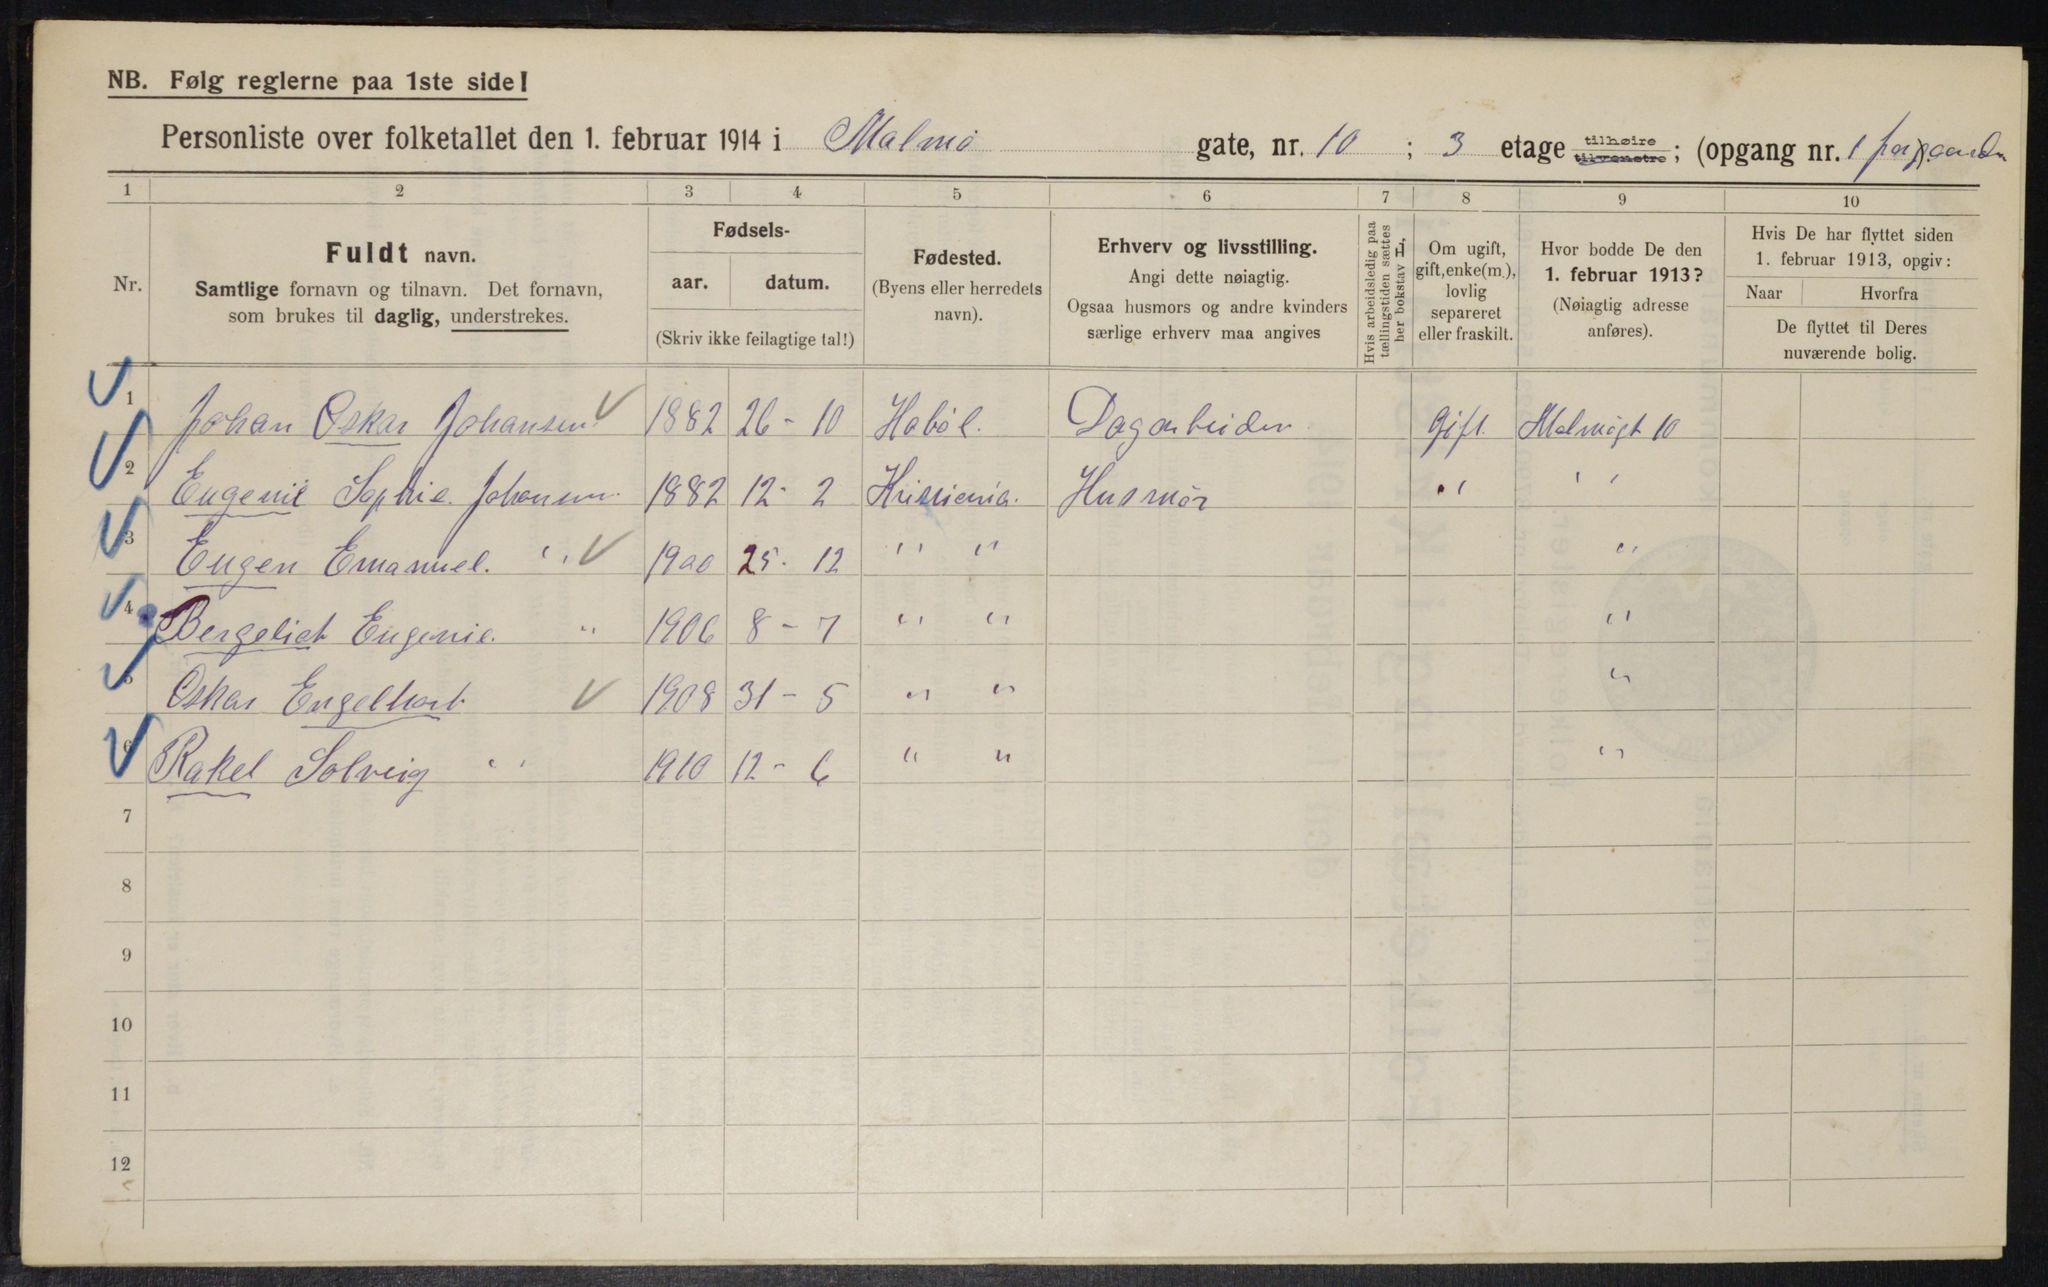 NB. Følg reglerne paa 1ste side!
Personliste over folketallet den 1. februar 1914 i Malmø gate, nr. 10 ; 3 etage tilhøire tilvenstre ; (opgang nr. 1
1 2 3 4 5 6 7 8 9 10
Nr.
Fuldt navn.
Samtlige fornavn og tilnavn. Det fornavn,
som brukes til daglig, understrekes.
Fødsels-
aar. datum.
(Skriv ikke feilagtige tal!)
Fødested.
(Byens eller herredets
navn).
Erhverv og livsstilling.
Angi dette nøiagtig.
Ogsaa husmors og andre kvinders
særlige erhverv maa angives
Hvis arbeidsledig paa
tællingstiden sættes
her bokstav L.
Om ugift,
gift, enke(m.),
lovlig
separeret
eller fraskilt.
Hvor bodde De den
1. februar 1913?
(Nøiagtig adresse
anføres).
Hvis De har flyttet siden
1. februar 1913, opgiv:
Naar Hvorfra
De flyttet til Deres
nuværende bolig.
1 Johan Oskar Johansen 1882 26 - 10 Habøl. Dagarbeider Gift. Malmøgt 10
2 Eugenie Sophie Johansen 1882 12 - 2 Kristiania. Husmor " " "
3 Eugen Emanuel. " 1900 25 - 12 " " "
4 Bergeliot Eugenie. " 1906 8 - 7 " " "
5 Oskar Engelhart 1908 31 - 5 " " "
6 Rakel Solveig " 1910 12 - 6 " " "
7
8
9
10
11
12